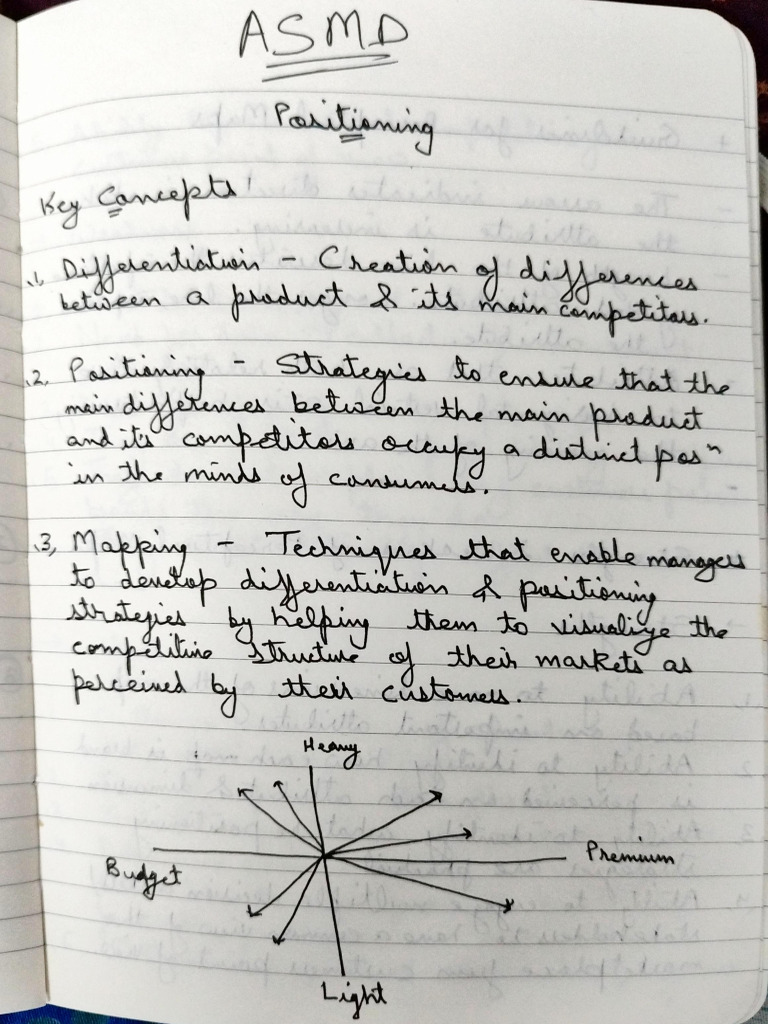 ASMD
Positioning
Key Concepts!
1, Differentiation - Creation of differences
between a product & its main competitors.
2. Positioning - Strategies to ensure that the
main differences between the main product
and its competitors occupy a distinct posⁿ
in the minds of consumers.
3, Mapping - Techniques that enable managers
to develop differentiation & positioning
strategies by helping them to visualize the
competitive structure of their markets as
perceived by their customers.
Heavy
Budget
Premium
Light